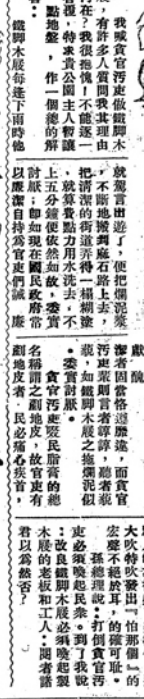 我喊貪官污吏做鐵脚木
屐，有許多人質問我其由
何在？我很抱愧！不能逐一
答覆，特求貴公園主人暫讓
點地盤，作一個總的解
答：
鐵脚木屐每逢下雨時他
就駕言出遊了，便把爛泥漿
，不斷地搬到麻石路上去，
把清潔的街道弄得一塌糊塗
，就算費點力用水洗去，不
上五分鐘便依然如故，委實
討厭；即如現在國民政府常
以廉潔自持為官吏們誡，廉
潔者固當恪遵靡違，而貪官
污吏聚則言者諄諄，聽者藐
藐，如鐵脚木屐之拖爛泥似
，委實討厭。
貪官污吏吸民脂膏的總
名稱謂之剷地皮，故官吏有
剷地皮者，民必痛心疾首，
大吹特吹發出『怕那個』的
宏聲不絕於耳，的確可恥。
孫總理說：打倒貪官污
吏必須喚起民衆。到了我說
：改良鐵脚木屐必須喚起製
木屐的老板和工人。閱者諸
君以為然否？